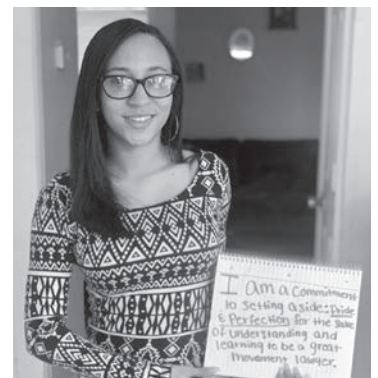 I am a Commitment
to setting aside: Pride
& Perfection for the Sake
of Understanding and
learning to be a great
movement lawyer.